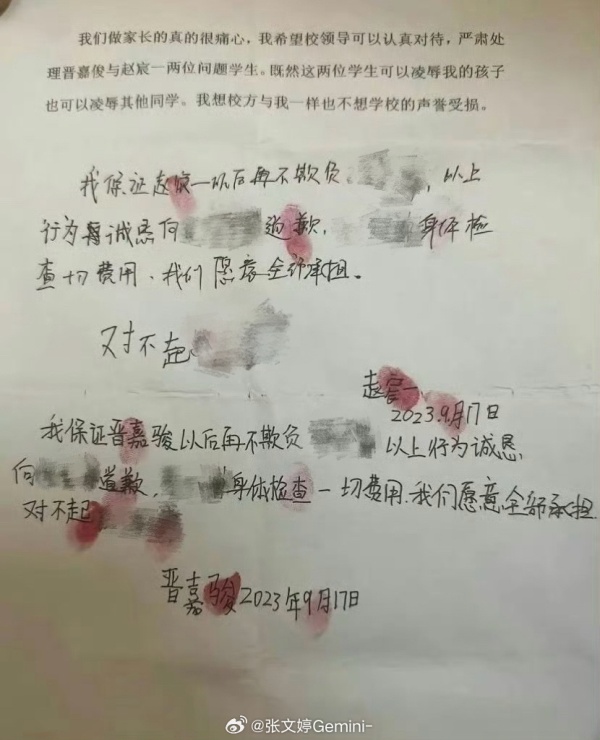 我们做家长的真的很痛心，我希望校领导可以认真对待，严肃处
理晋嘉俊与赵宸一两位问题学生。既然这两位学生可以凌辱我的孩子
也可以凌辱其他同学。我想校方与我一样也不想学校的声誉受损。
我保证赵宸一以后再不欺负，以上
行为 诚恳向道歉，身体检
查一切费用、我们愿意全部承担。
对不起
赵宸一
2023.9月17日
我保证晋嘉骏以后再不欺负 以上行为诚恳
向道歉，身体检查一切费用.我们愿意全部承担
对不起
晋嘉骏2023年9月17日
@张文婷Gemini-